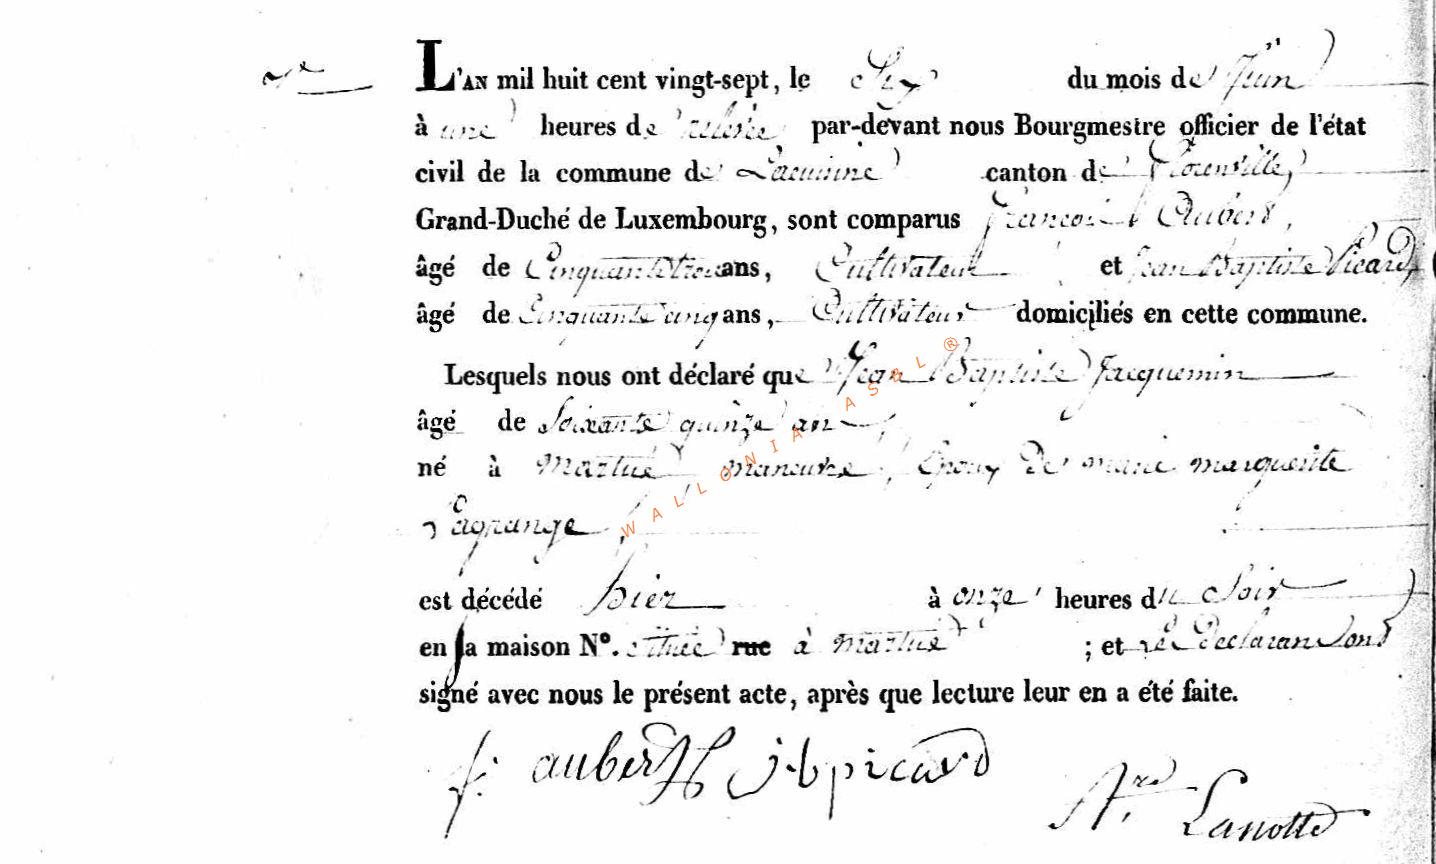 L'AN mil huit cent vingt-sept, le Six du mois de Juin
à une heures de relevée, par-devant nous Bourgmestre officier de l'état
civil de la commune de Lacuisine canton de Florenville,
Grand-Duché de Luxembourg, sont comparus François Aubert,
âgé de Cinquante trois ans, Cultivateur et Jean Baptiste Picard,
âgé de Cinquante cinq ans, Cultivateur domiciliés en cette commune.
Lesquels nous ont déclaré que Jean Baptiste Jacquemin
âgé de Soixante quinze an
né à Martué manœuvre, Epoux de marie marguerite
Lagrange,
est décédé hier à onze heures du Soir
en sa maison N°. située rue à Martué ; et les Declarans ont
signé avec nous le présent acte, après que lecture leur en a été faite.
f: aubert j.b picard
Lanotte
WALLONIA ASBL ®